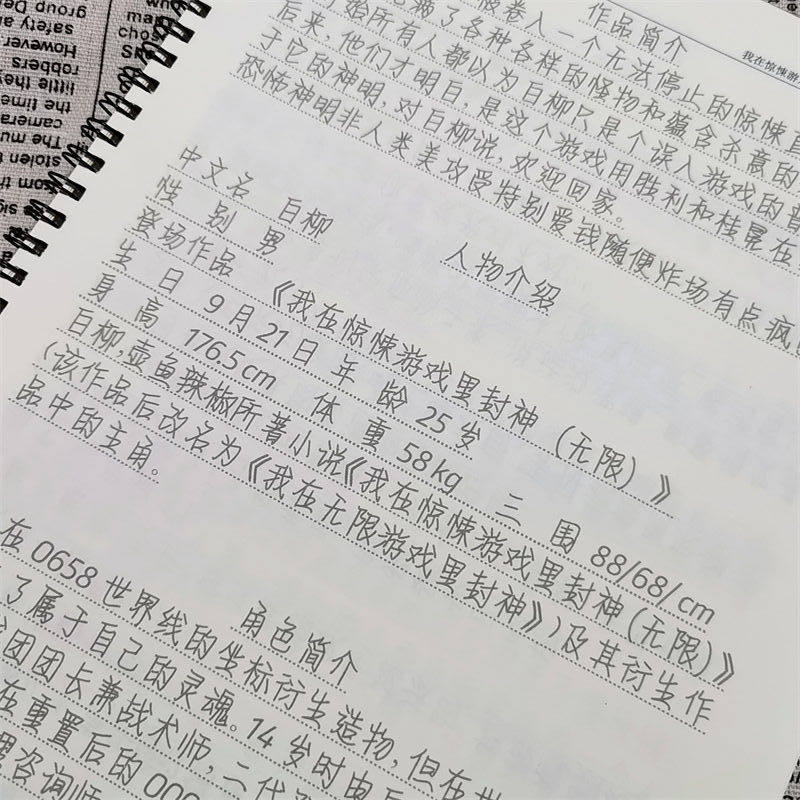 我在惊悚游
作品简介
被卷入一个无法停止的惊悚直
满了各种各样的怪物和蕴含杀意的
开始所有人都以为白柳只是个误入游戏的普
后来,他们才明白,是这个游戏用胜利和桂冕在
于它的神明,对白柳说,欢迎回家。
恐怖神明非人类美攻受特别爱钱随便炸场有点疯
人物介绍
中文名 白柳
性 别 男
登场作品 《我在惊悚游戏里封神(无限)》
生 日 9月21日 年 龄 25岁
身 高 176.5cm 体 重 58kg 三 围 88/68/cm
白柳,壶鱼辣椒所著小说《我在惊悚游戏里封神(无限)》
(该作品后改名为《我在无限游戏里封神》)及其衍生作
品中的主角。
角色简介
在0658世界线的坐标衍生造物,但在世
了属于自己的灵魂。14岁时由
团团长兼战术师,二代
在重置后的00
咨询师